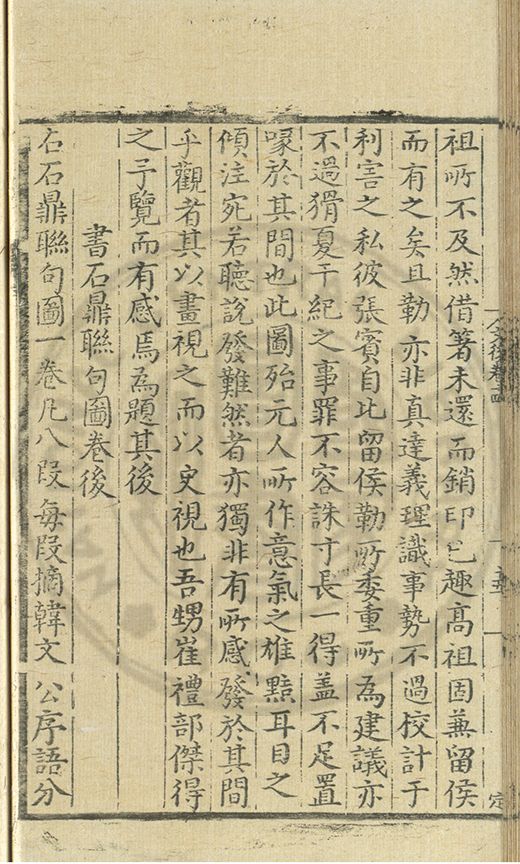 定
祖所不及然借箸未還而銷印已趣高祖固兼留侯
而有之矣且勒亦非真達義理識事勢不過校計于
利害之私彼張賓自此留侯勒所委重所為建議亦
不過猾夏干紀之事罪不容誅寸長一得盖不足置
喙於其間也此圖殆元人所作意氣之雄黠耳目之
傾注宛若聽說發難然者亦獨非有所感發於其間
乎觀者其以畫視之而以史視也吾甥崔禮部傑得
之予覽而有感焉為題其後
書石鼎聯句圖卷後
右石鼎聯句圖一卷凡八段每段摘韓文公序語分